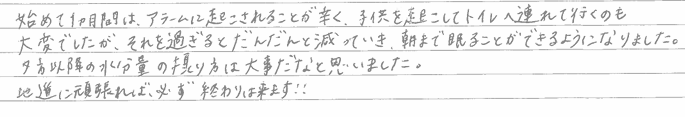 始めて1ヶ月間は、アラームに起こされることが辛く、子供を起こしてトイレへ連れて行くのも
大変でしたが、それを過ぎるとだんだんと減っていき、朝まで眠ることができるようになりました。
夕方以降の水分量の摂り方は大事だなと思いました。
地道に頑張れば、必ず終わりは来ます!!